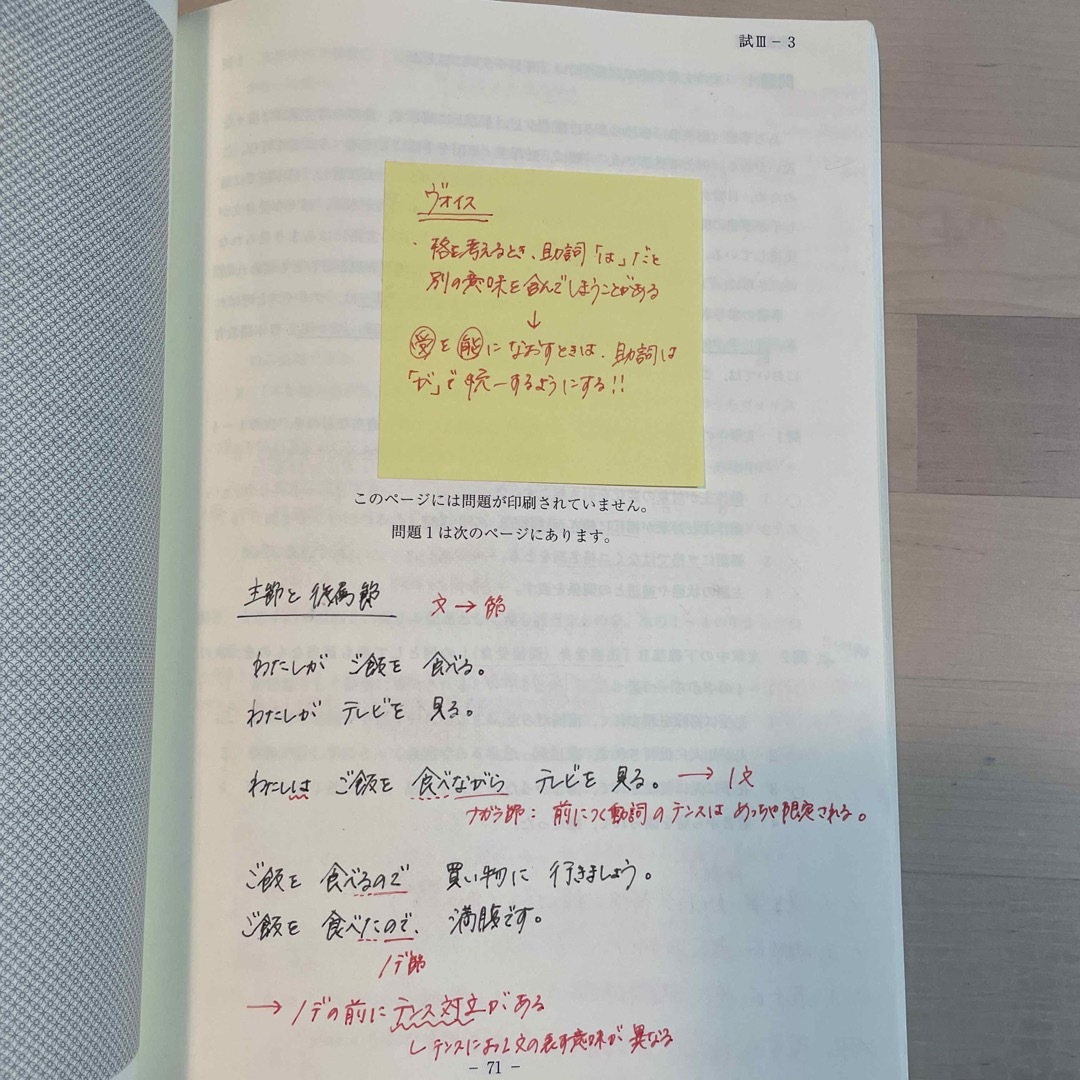 試Ⅲ－3
ヴォイス
・格を考えるとき、助詞「は」だと
別の意味を含んでしまうことがある
↓
受を能になおすときは、助詞は
「が」で統一するようにする!!
このページには問題が印刷されていません。
問題1は次のページにあります。
主節と従属節 文→節
わたしが ご飯を 食べる。
わたしが テレビを 見る。
わたしは ご飯を 食べながら テレビを 見る。 → 1文
ナガラ節: 前につく動詞のテンスは めっちゃ限定される。
ご飯を 食べるので 買い物に 行きましょう。
ご飯を 食べたので、 満腹です。
ノデ節
→ ノデの前にテンス対立がある
テンスによって文の表す意味が異なる
－71－